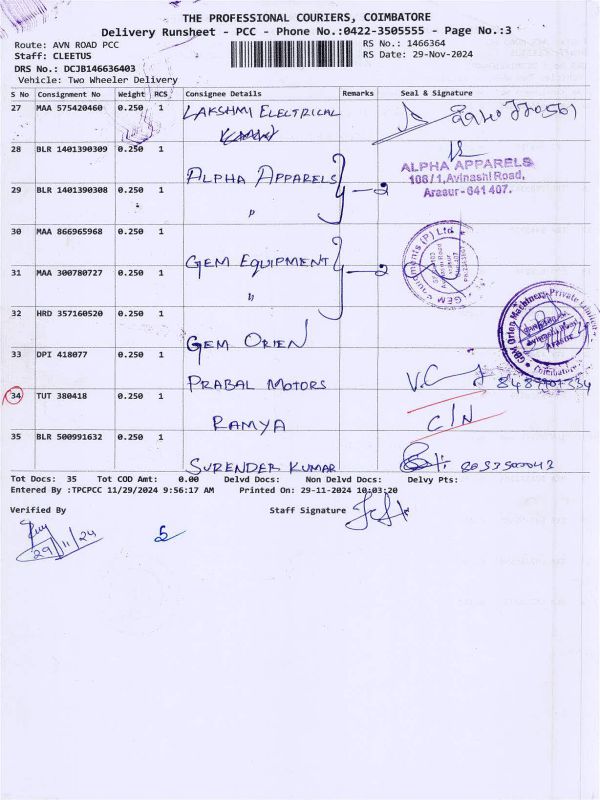 THE PROFESSIONAL COURIERS, COIMBATORE
Delivery Runsheet - PCC - Phone No.:0422-3505555 - Page No.:3
Route: AVN ROAD PCC
RS No.: 1466364
Staff: CLEETUS
RS Date: 29-Nov-2024
DRS No.: DCJB146636403
Vehicle: Two Wheeler Delivery
S No Consignment No Weight RCS Consignee Details Remarks Seal & Signature
27 MAA 575420460 0.250 1 LAKSHMI ELECTRICAL
28 BLR 1401390309 0.250 1
ALPHA APPARELS - 2
ALPHA APPARELS
106/1, Avinashi Road,
Arasur - 641 407.
29 BLR 1401390308 0.250 1
"
30 MAA 866965968 0.250 1
GEM EQUIPMENT - 2
31 MAA 300780727 0.250 1
"
32 HRD 357160520 0.250 1
GEM ORIEN
GEM Orien Machinery Private Limited
Arasur
Coimbatore
33 DPI 418077 0.250 1
PRABAL MOTORS
34 TUT 380418 0.250 1
RAMYA C/N
35 BLR 500991632 0.250 1
SURENDER KUMAR
Tot Docs: 35 Tot COD Amt: 0.00 Delvd Docs: Non Delvd Docs: Delvy Pts:
Entered By :TPCPCC 11/29/2024 9:56:17 AM Printed On: 29-11-2024 10:03:20
Verified By Staff Signature
29/11/24
5